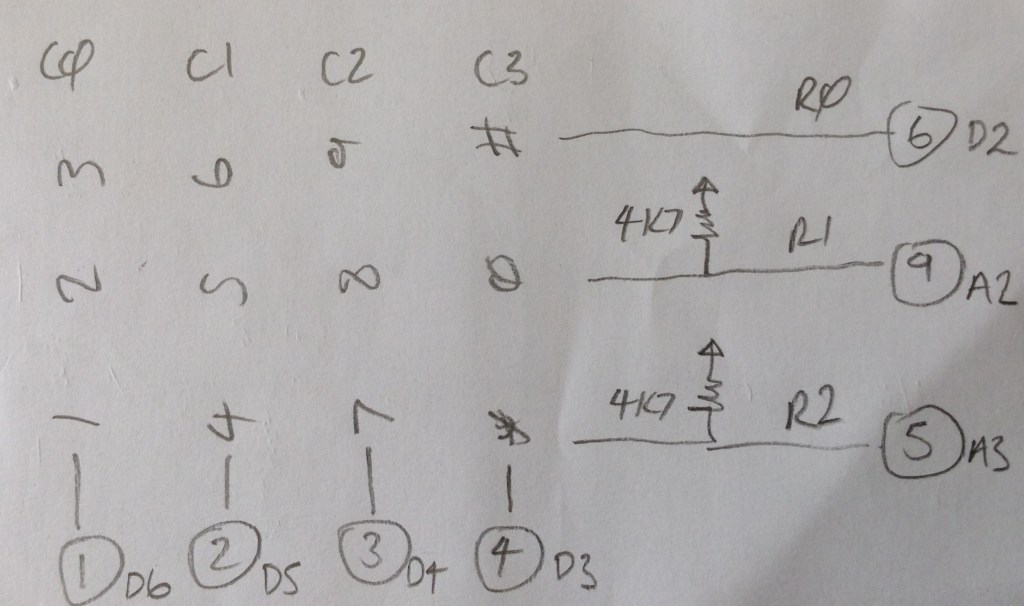 CØ C1 C2 C3
RØ
3 6 9 # 6 D2
4K7 R1
2 5 8 0 9 A2
4K7 R2
1 4 7 * 5 A3
1 D6 2 D5 3 D4 4 D3